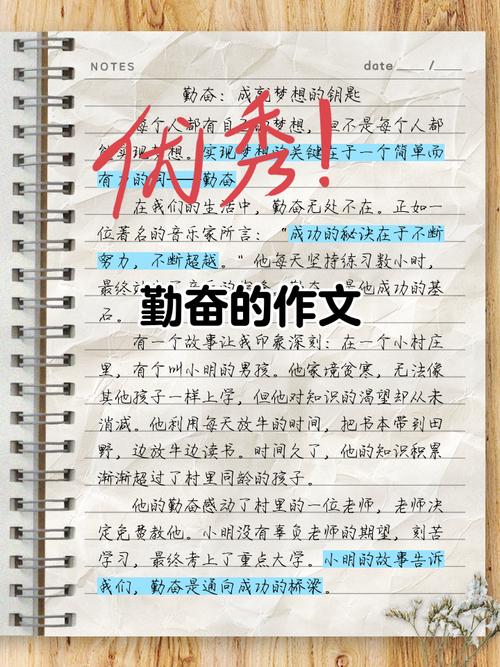 NOTES
date / 
勤奋：成就梦想的钥匙
优秀！
每个人都有自己的梦想，但不是每个人都
能实现梦想。实现梦想的关键在于一个简单而
有力的词——勤奋。
在我们的生活中，勤奋无处不在。正如一
位著名的音乐家所言：“成功的秘诀在于不断
努力，不断超越。”他每天坚持练习数小时，
最终 是他成功的基
石。
勤奋的作文
有一个故事让我印象深刻：在一个小村庄
里，有个叫小明的男孩。他家境贫寒，无法像
其他孩子一样上学，但他对知识的渴望却从未
消减。他利用每天放牛的时间，把书本带到田
野，边放牛边读书。时间久了，他的知识积累
渐渐超过了村里同龄的孩子。
他的勤奋感动了村里的一位老师，老师决
定免费教他。小明没有辜负老师的期望，刻苦
学习，最终考上了重点大学。小明的故事告诉
我们，勤奋是通向成功的桥梁。